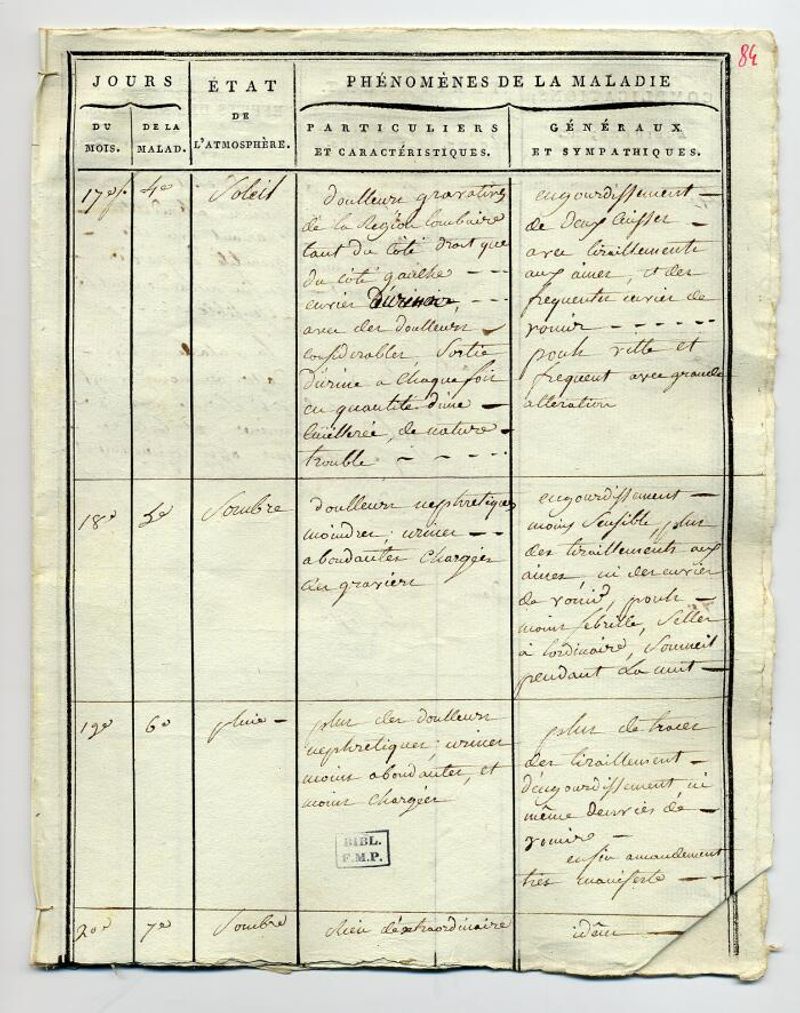 84
JOURS
ÉTAT
DE
L'ATMOSPHÈRE.
PHÉNOMÈNES DE LA MALADIE
DU
MOIS.
DE LA
MALAD.
PARTICULIERS
ET CARACTÉRISTIQUES.
GÉNÉRAUX
ET SYMPATHIQUES.
17e
4e
Soleil
doulleurs gravatives
de la Région lombaire
tant du Côté droit que
du côté gauche - - -
envies D'uriner, - - -
avec des doulleurs -
considerables, Sortie
d'urine a Chaque fois
en quantité d'une -
Cuëillerée, de nature -
trouble - - - - -
engourdissement -
de deux Cuisses -
avec tiraillements
aux aines, et des
frequentes envies de
vomir - - - - - -
pouls vitte et
frequent avec grande
alteration
18e
5e
Sombre
doulleurs nephretiques
moindres; urines - -
abondantes Chargées
des graviers
engourdissement -
moins Sensible, plus
des tiraillements aux
aines, ni des envies
de vomir, pouls -
moins febrille, Selles
à l'ordinaire, Sommeil
pendant La nuit -
19e
6e
pluie -
plus des doulleurs
nephretiques; urines
moins abondantes, et
moins Chargées
plus de traces
des tiraillement -
d'engourdissement, ni
même d'envies de -
vomire -
enfin amandement
tres manifeste - -
20e
7e
Sombre
Rien d'éxtraordinaire
idêm -
BIBL.
F.M.P.